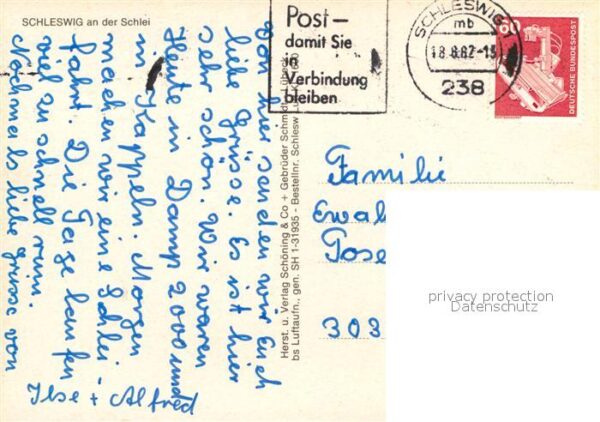 SCHLESWIG an der Schlei
Von hier senden wir Euch
liebe Grüsse. Es ist hier
sehr schön. Wir waren
Heute in Damp 2000 und
in Kappeln. Morgen
machen wir eine Schlei-
fahrt. Die Tage laufen
viel zu schnell rum.
Nochmals liebe Grüsse von
Ilse + Alfred
Herst. u. Verlag Schöning & Co + Gebrüder Schmidt,
bs Luftaufn., gen. SH 1-31935 - Bestellnr. Schlesw
Post–
damit Sie
in
Verbindung
bleiben
SCHLESWIG 1
mb
18.8.82-15
238
60
DEUTSCHE BUNDESPOST
Familie
Ewal
Tose
303
privacy protection
Datenschutz